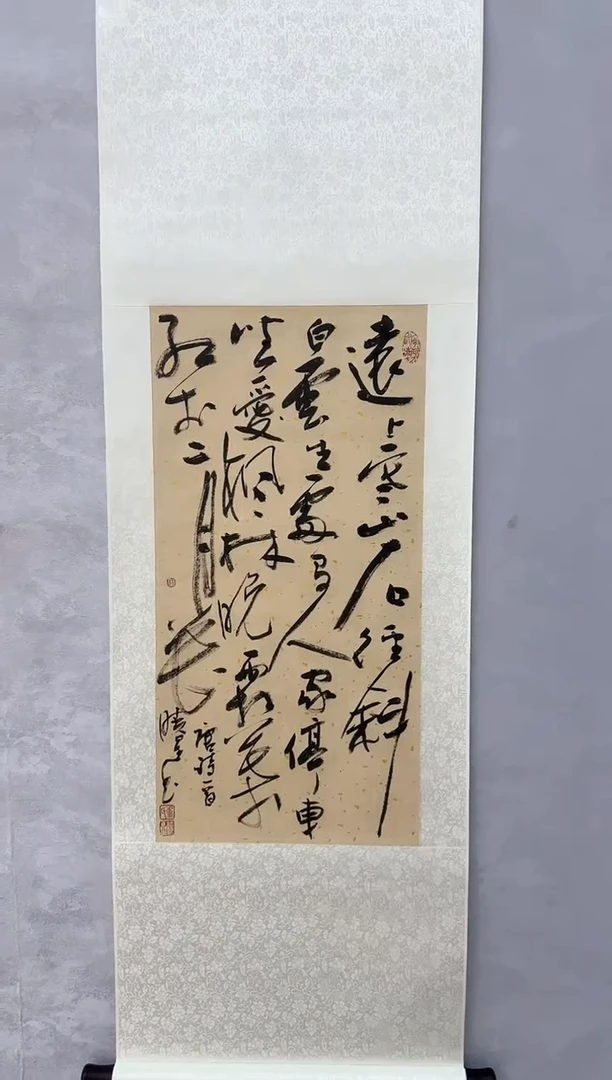 遠上寒山石徑斜
白雲生處有人家停車
坐愛楓林晚霜葉
紅於二月花
唐詩一首